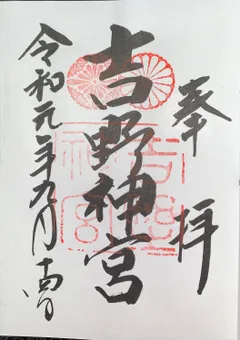 奉拝
吉野神宮
令和元年九月十四日
吉野神宮